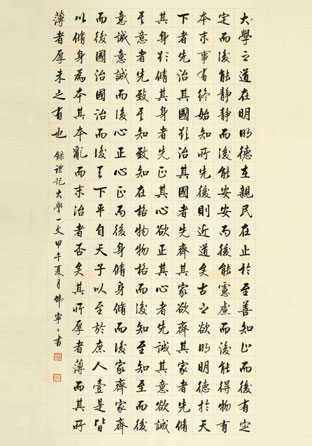 大學之道在明明德在親民在止於至善知止而後有定
定而後能靜靜而後能安安而後能慮慮而後能得物有
本末事有終始知所先後則近道矣古之欲明明德於天
下者先治其國欲治其國者先齊其家欲齊其家者先脩
其身欲脩其身者先正其心欲正其心者先誠其意欲誠
其意者先致其知致知在格物物格而後知至知至而後
意誠意誠而後心正心正而後身脩身脩而後家齊家齊
而後國治國治而後天下平自天子以至於庶人壹是皆
以脩身為本其本亂而末治者否矣其所厚者薄而其所
薄者厚未之有也 錄禮記大學一文甲午夏月書